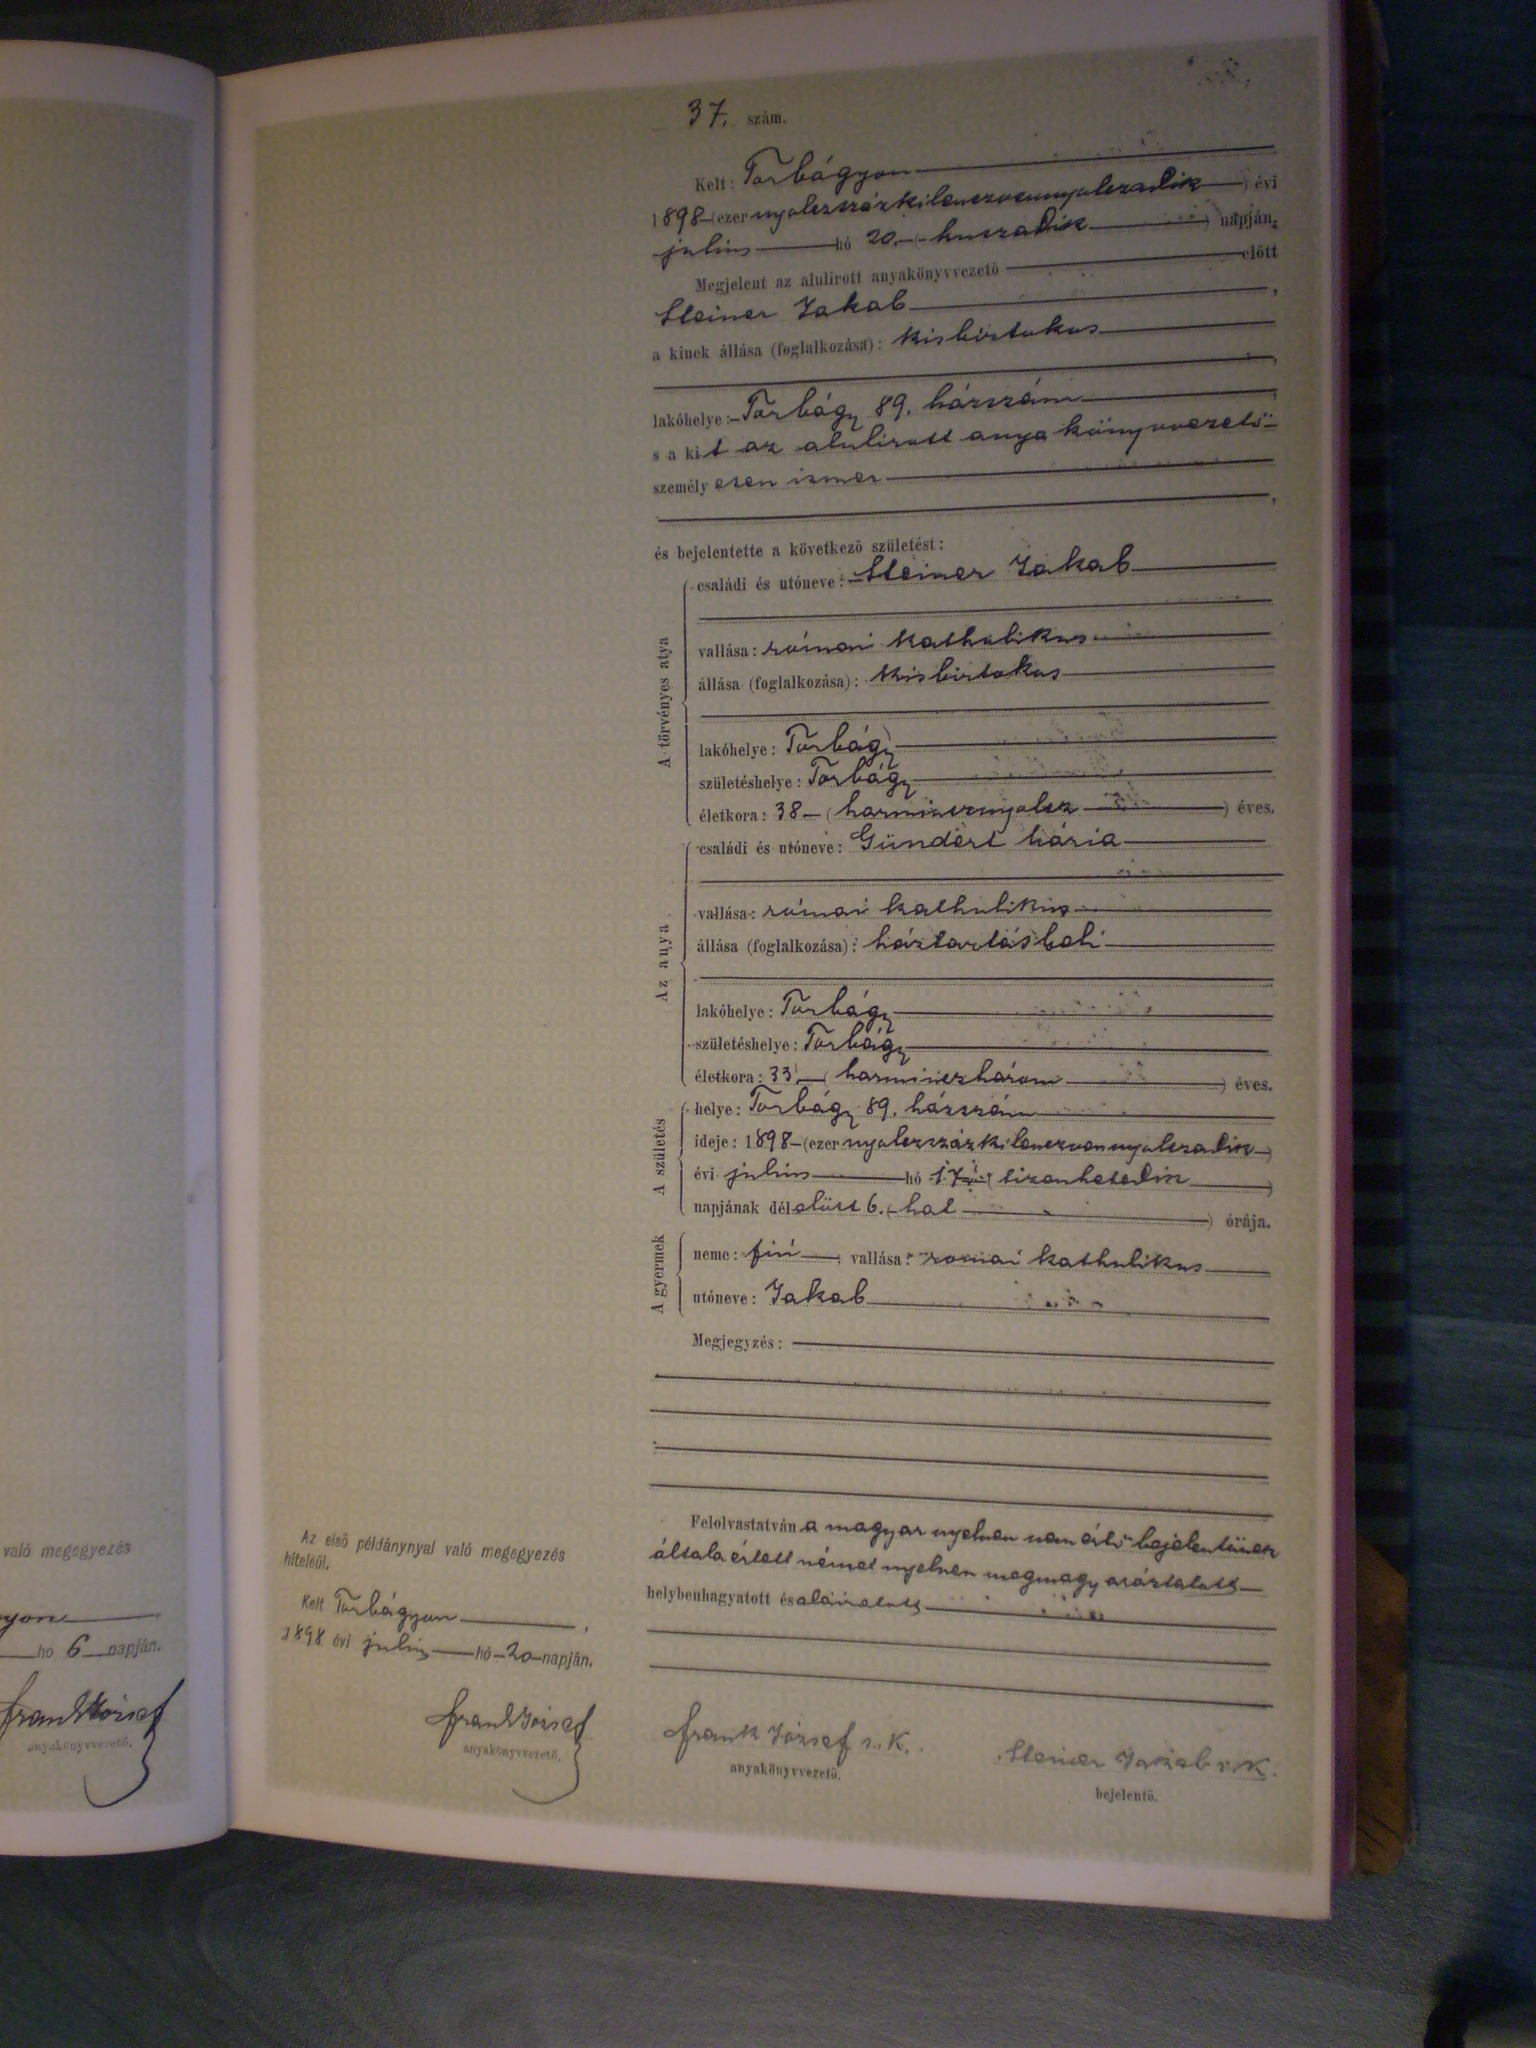 37. szám.
Kelt: Torbágyon
1898 (ezer nyolczszázkilenczvennyolczadik) évi
julius hó 20. (huszadik) napján,
Megjelent az alulirott anyakönyvvezető előtt
Steiner Jakab,
a kinek állása (foglalkozása): kisbirtokos
lakóhelye: Torbágy 89. házszám,
s a kit az alulirott anyakönyvvezető
személyesen ismer,
és bejelentette a következő születést:
A törvényes atya
családi és utóneve: Steiner Jakab
vallása: római katholikus
állása (foglalkozása): kisbirtokos
lakóhelye: Torbágy
születéshelye: Torbágy
életkora: 38 (harmincznyolcz) éves.
Az anya
családi és utóneve: Gündert Mária
vallása: római katholikus
állása (foglalkozása): háztartásbeli
lakóhelye: Torbágy
születéshelye: Torbágy
életkora: 33 (harminczhárom) éves.
A születés
helye: Torbágy 89. házszám
ideje: 1898 (ezer nyolczszázkilenczvennyolczadik)
évi julius hó 17 (tizenhetedik)
napjának délelőtt 6. (hat) órája.
A gyermek
neme: fiú, vallása: romai katholikus
utóneve: Jakab
Megjegyzés:
Felolvastatván a magyar nyelven nem értő bejelentőnek
általa értett német nyelven megmagyaráztatott
helybenhagyatott és aláiratott
Frank József s. k.
anyakönyvvezető.
Steiner Jakab s. k.
bejelentő.
Az első példánynyal való megegyezés
hiteléül.
Kelt Torbágyon,
1898 évi julius hó 20 napján.
Frank József
anyakönyvvezető.
való megegyezés
yon,
hó 6 napján.
Frank József
anyakönyvvezető.